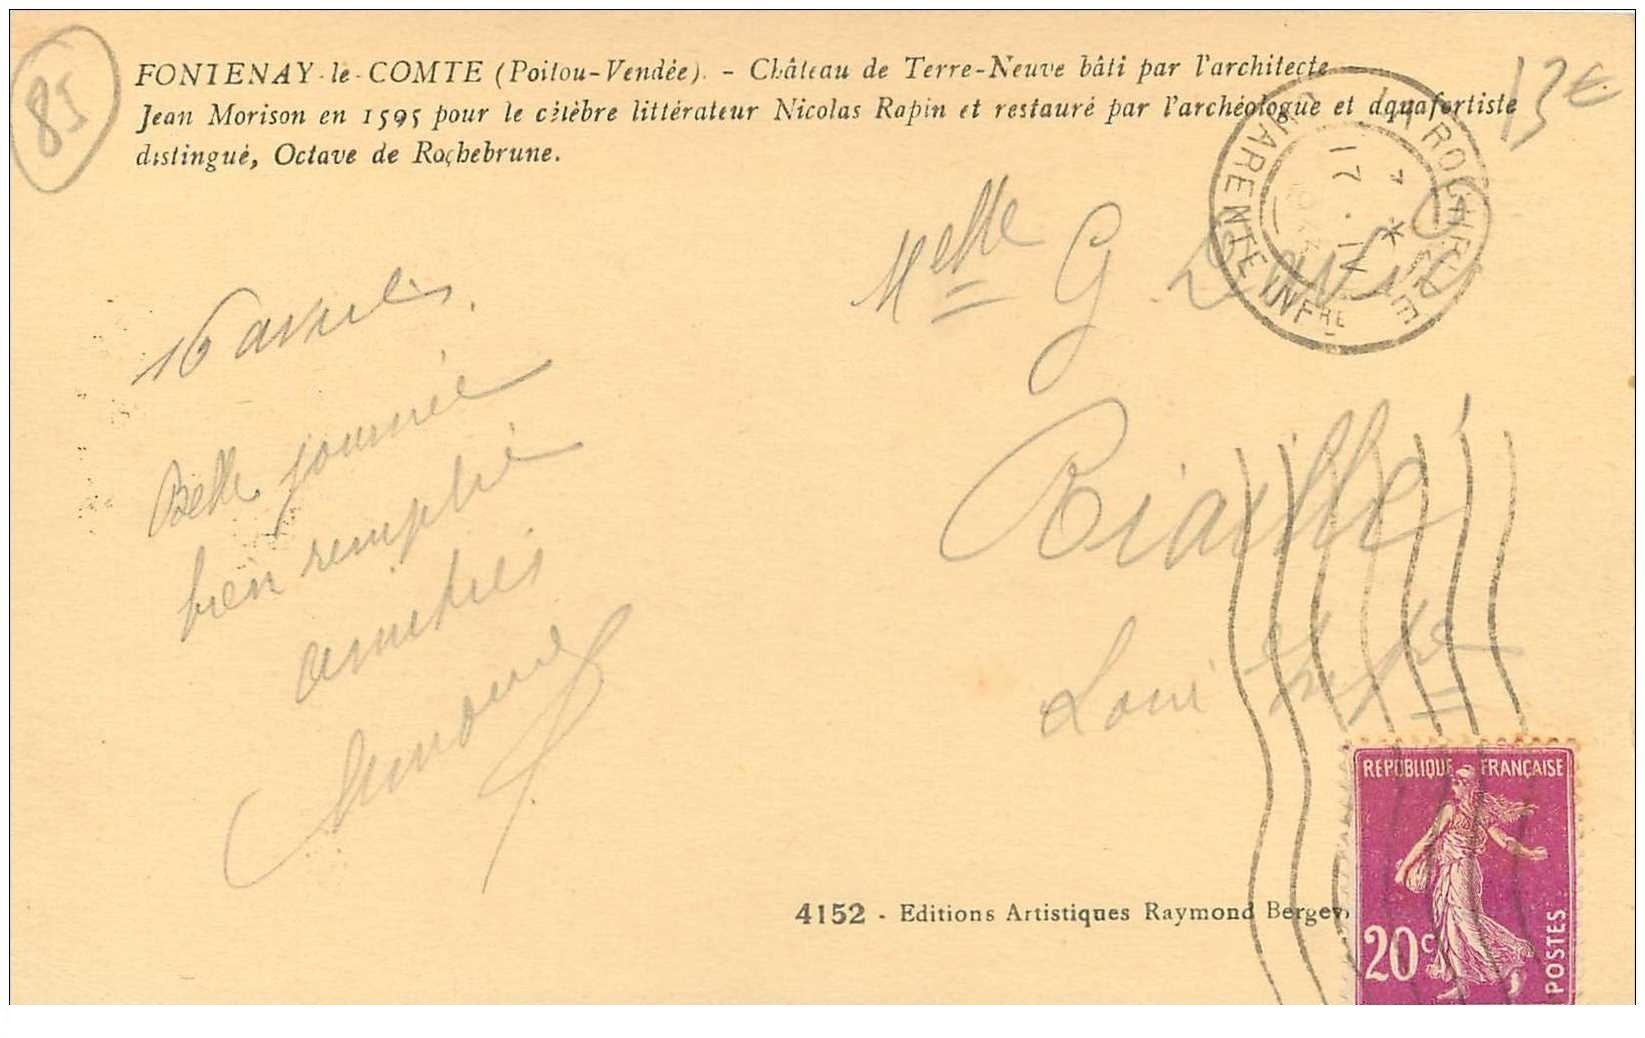 85
FONTENAY-le-COMTE (Poitou-Vendée). - Château de Terre-Neuve bâti par l'architecte
Jean Morison en 1595 pour le célèbre littérateur Nicolas Rapin et restauré par l'archéologue et aquafortiste
distingué, Octave de Rochebrune.
13€
LA ROCHELLE
17 · IV
CHARENTE INFRE
Melle G.
Riaillé
Loire Infre
16
Belle journée
bien remplie
amitiés
4152 - Editions Artistiques Raymond Bergev
REPUBLIQUE FRANÇAISE
20c
POSTES